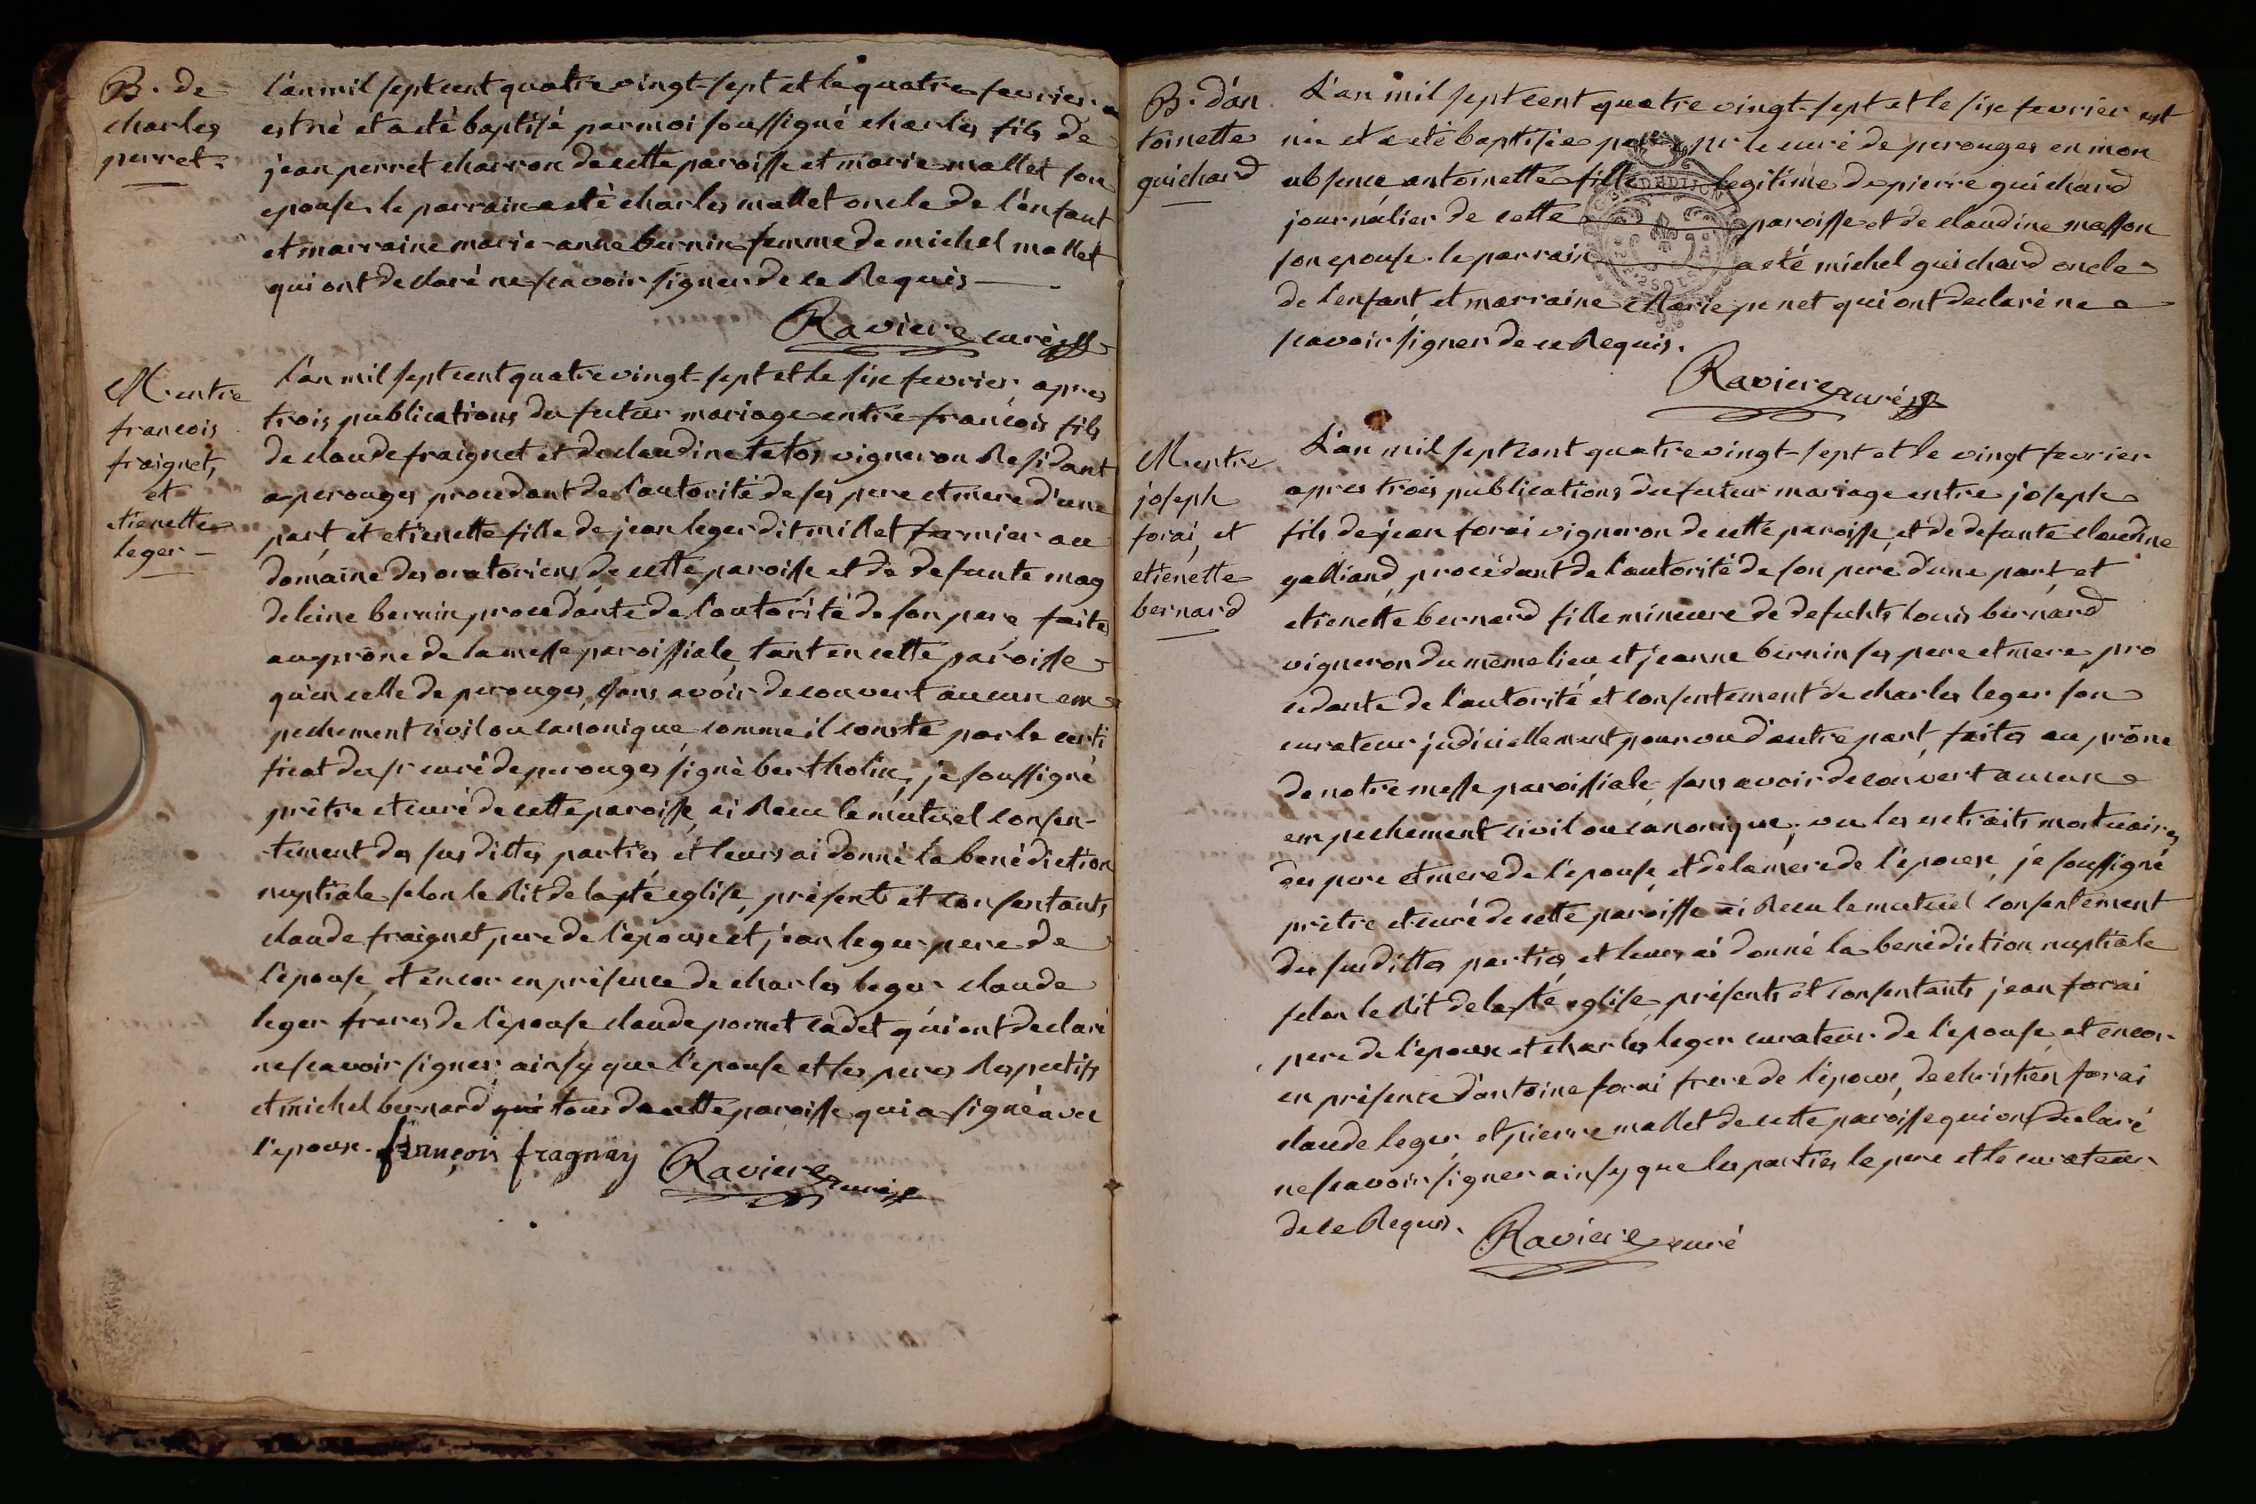 B. de
charles
perret.
l'an mil sept cent quatre vingt-sept et le quatre fevrier
est né et a eté baptisé par moi soussigné charles fils de
jean perret charron de cette paroisse et marie mallet son
epouse. le parrain a eté charles mallet oncle de l'enfant
et marraine marie-anne bernin femme de michel mallet
qui ont declaré ne scavoir signer de ce Requis
Raviere curé
M. entre
francois
fraignet,
et
etienette
leger
l'an mil sept cent quatre vingt-sept et le six fevrier, apres
trois publications du futur mariage entre françois fils
de claude fraignet et de claudine tetos vigneron Residant
a perouges procedant de l'autorité de ses pere et mere d'une
part, et etienette fille de jean leger dit millet fermier au
domaine des oratoriens, de cette paroisse et de defunte mag
deleine bernin procedante de l'autorité de son pere, faites
au prône de la messe paroissiale, tant en cette paroisse
qu'en celle de perouges, sans avoir decouvert aucun em
pechement civil ou canonique, comme il conste par le certi
ficat du sr curé de perouges signé bertholin, je soussigné
prêtre et curé de cette paroisse ai Recu le mutuel consen-
tement des susdittes parties et leurs ai donné la benédiction
nuptiale selon le Rit de la ste eglise, présents et consentants
claude fraignet pere de l'epoux et jean leger pere de
l'epouse, et encor en présence de charles leger claude
leger freres de l'epouse claude pornet cadet qui ont declaré
ne scavoir signer, ainsy que l'epouse et les peres Respectifs
et michel bernard qui tous de cette paroisse qui a signé avec
l'epoux. françois fragnay Raviere curé
B. d'an
toinette
guichard
L'an mil sept cent quatre vingt-sept et le six fevrier est
née et a eté baptisée par mr le curé de perouges en mon
absence antoinette fille legitime de pierre guichard
journalier de cette paroisse et de claudine masson
son epouse. le parrain a eté michel guichard oncle
de l'enfant, et marraine Marie penet qui ont declaré ne
scavoir signer de ce Requis.
Raviere curé
M. entre
joseph
forai, et
etienette
bernard
L'an mil sept cent quatre vingt-sept et le vingt fevrier
apres trois publications du futur mariage entre joseph
fils de jean forai vigneron de cette paroisse, et de defunte claudine
galliand, procédant de l'autorité de son pere d'une part, et
etienette bernard fille mineure de defunts louis bernard
vigneron du même lieu, et jeanne bernin ses pere et mere, pro
cedante de l'autorité et consentement de charles leger son
curateur judiciellement pourvu d'autre part, faites au prône
de notre messe paroissiale, sans avoir decouvert aucun
empechement civil ou canonique; vu les extraits mortuaires
des pere et mere de l'epouse, et de la mere de l'epoux, je soussigné
prêtre et curé de cette paroisse ai Recu le mutuel consentement
des susdittes parties, et leurs ai donné la benédiction nuptiale
selon le Rit de la ste eglise, présents et consentants jean forai
pere de l'epoux et charles leger curateur de l'epouse et encor
en présence d'antoine forai frere de l'epoux, de christien forai
claude leger, et pierre mallet de cette paroisse qui ont declaré
ne scavoir signer ainsy que les parties le pere et le curateur
de ce Requis. Raviere curé